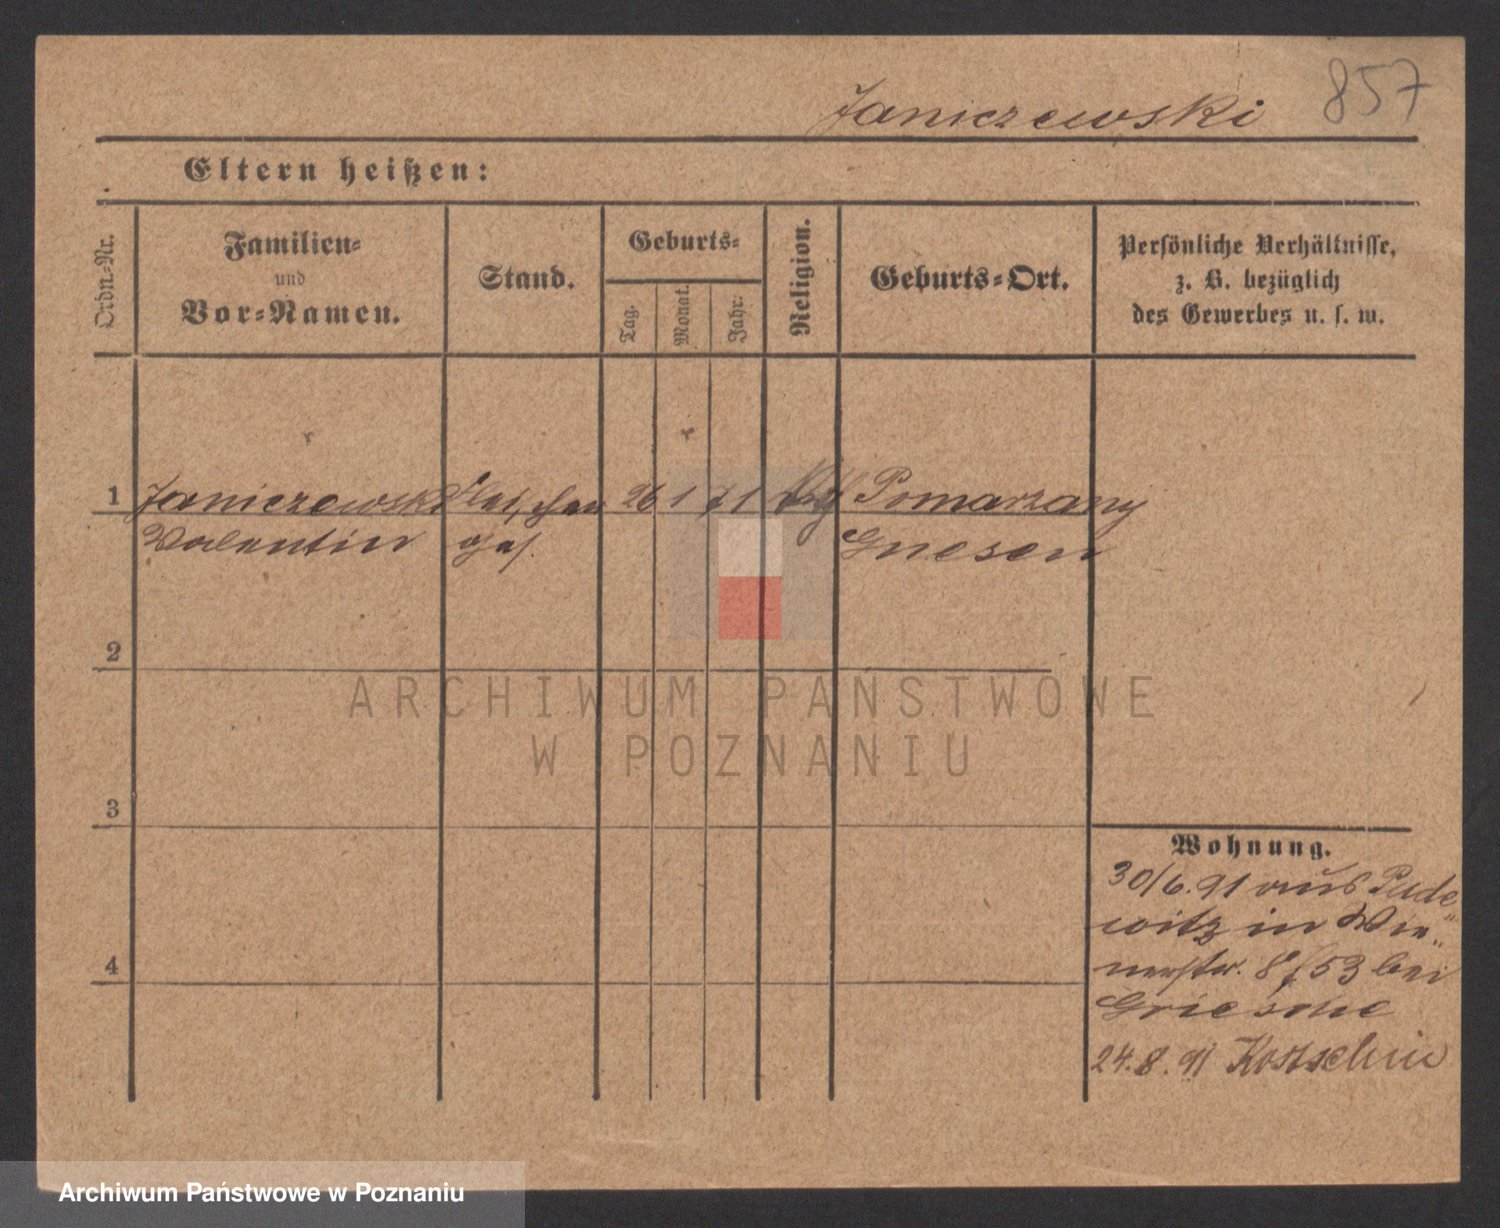 Janiczewski 857
Eltern heißen:
Ordn.-Nr.
Familien-
und
Vor-Namen.
Stand.
Geburts-
Tag.
Monat.
Jahr.
Religion.
Geburts-Ort.
Persönliche Verhältnisse,
z. B. bezüglich
des Gewerbes u. s. w.
1 Janiczewski Fleischer 26 1 71 Pomarzany
Valentin ges. Gnesen
2
ARCHIWUM PAŃSTWOWE
W POZNANIU
3
4
Wohnung.
30/6.91 aus Pude
witz in Wie„
nerstr. 8 53 bei
Griesche
24.8.91 Kostschin
Archiwum Państwowe w Poznaniu